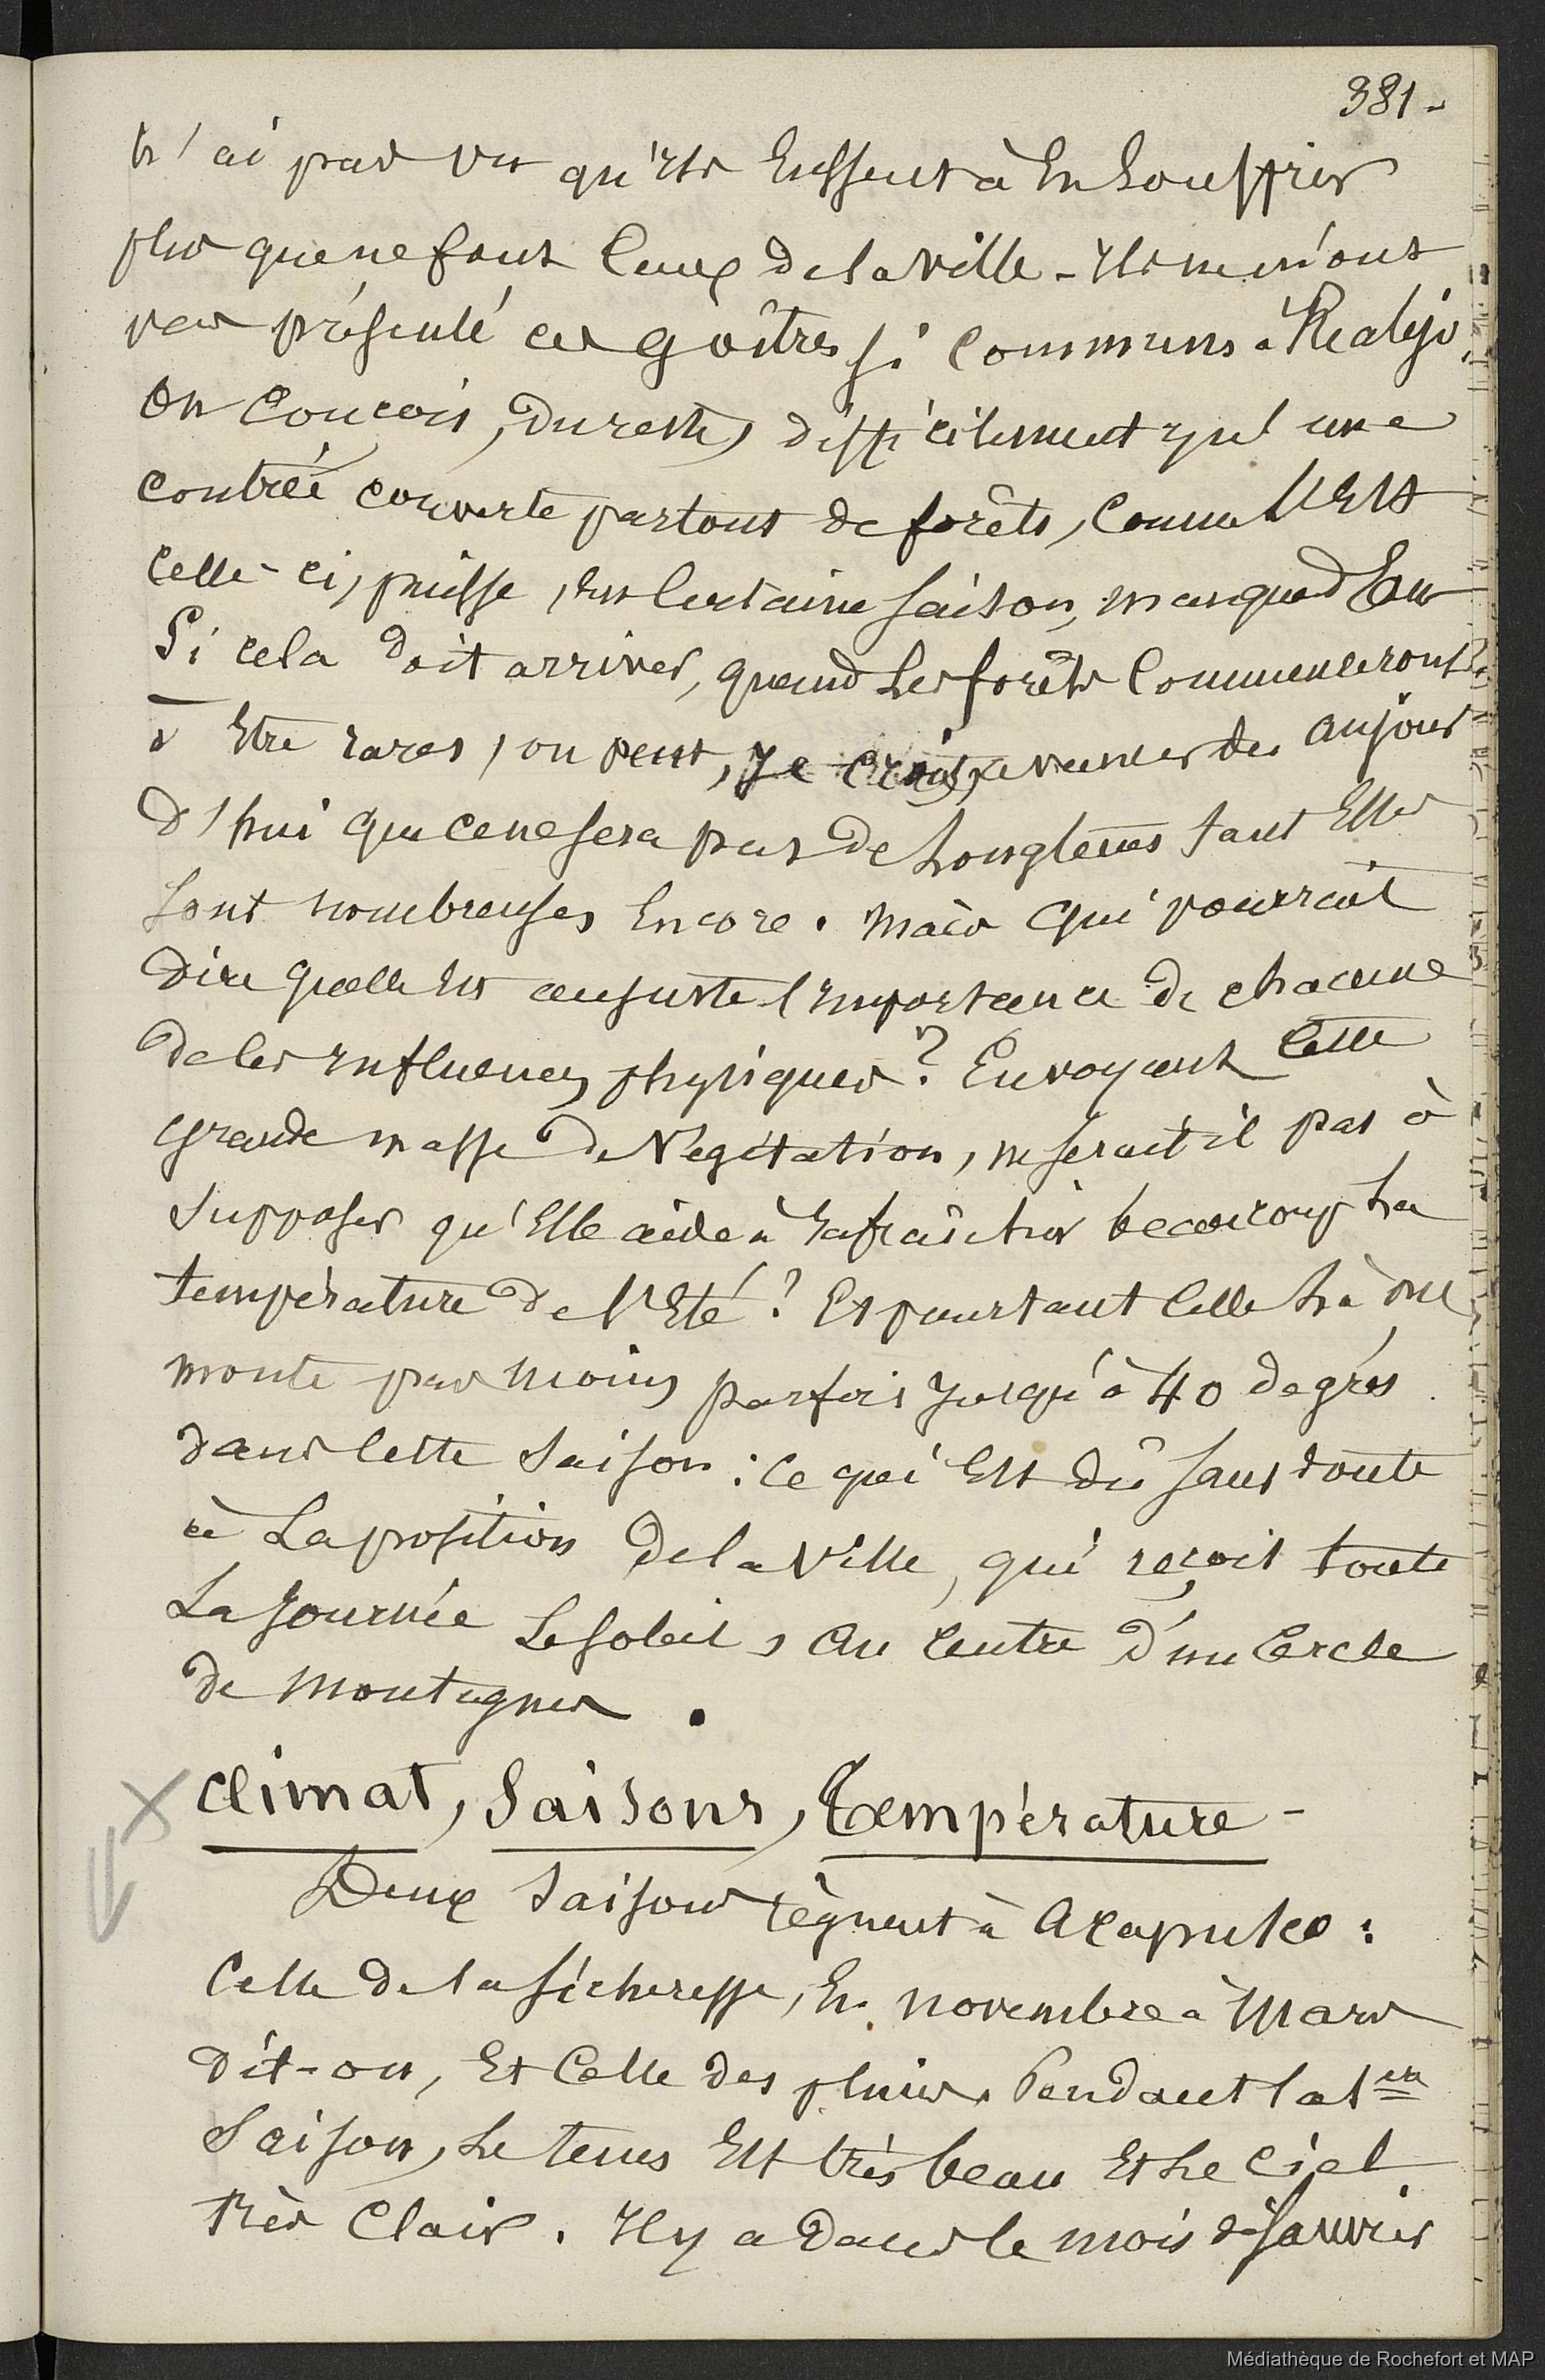 381-
n'ai pas vu qu'ils eussent à en souffrir
plus que ne font ceux de la ville - ils ne m'ont
pas présenté ces goîtres si communs à Realejo.
On conçois, du reste, difficilement qu'une
contrée couverte partout de forêts, comme l'est
celle-ci, puisse, en certaine saison, manquer d'Eau
Si cela doit arriver, quand les forêts commenceront
à être rares, on peut, je crois, avancer dès aujour
d'hui que ce ne sera pas de longtems tant elles
sont nombreuses encore. Mais qui pourrait
dire quelle est au juste l'importance de chacune
de ces influences physiques? En voyant cette
grande masse de Végétation, ne serait il pas à
supposer qu'elle aide à rafraîchir beaucoup la
température de l'Eté? Et pourtant celle là ne
monte pas moins parfois jusqu'à 40 degrés
dans cette saison: ce qui est dû sans doute
à la position de la ville, qui reçoit toute
la journée le soleil, au centre d'un cercle
de montagnes.
Climat, Saisons, Température -
Deux saisons règnent à Acapulco:
celle de la sécheresse, en novembre à Mars
dit-on, et celle des pluies. Pendant la 1ere
Saison, le tems est très beau et le ciel
très clair. Il y a dans le mois de Janvier
Médiathèque de Rochefort et MAP